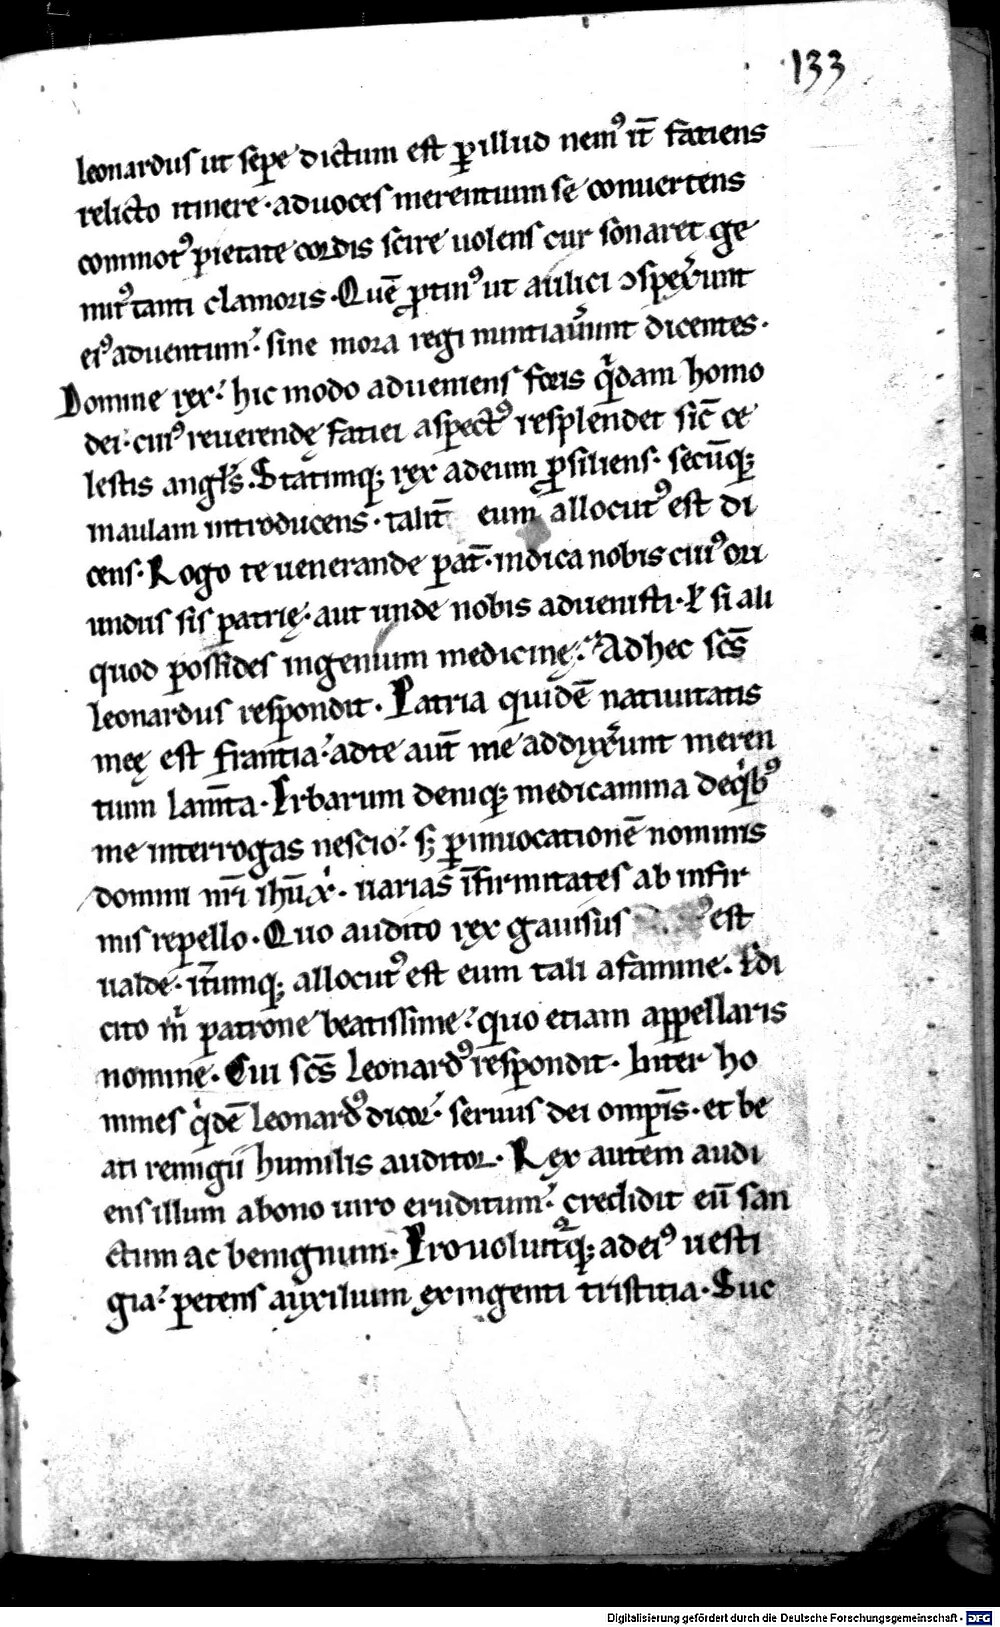 133
leonardus ut sepe dictum est ꝑ illud nemꝰ it̄ fatiens
relicto itinere · ad uoces merentium se conuertens
commotꝰ pietate cordis scire uolens cur sonaret ge
mitꝰ tanti clamoris · Quē ꝓtinꝰ ut aulici ↄspexer̄unt
eiꝰ aduentum · sine mora regi nuntiauer̄unt dicentes ·
Domine rex · hic modo adueniens foris qͥdam homo
dei · cuiꝰ reuerendę fatiei aspectꝰ resplendet sic̄ ce
lestis angl̄s · Statimq; rex ad eum ꝓsiliens · secūq;
in aulam introducens · talit̄ eum allocutꝰ est di
cens · Rogo te uenerande pat̄ · indica nobis cuiꝰ ori
undus sis patrię · aut unde nobis aduenisti · ł si ali
quod possides ingenium medicinę · Ad hec scs̄
leonardus respondit · Patria quidē natiuitatis
meę est frantia · ad te aut̄ me adduxer̄unt meren
tium lam̄ta · Erbarum deniq; medicamina de qͥbꝰ
me interrogas nescio · s; ꝑ inuocationē nominis
domini nr̄i ihū xͥ · uarias īfirmitates ab infir
mis repello · Quo audito rex gauisus est
ualde · it̄umq; allocutꝰ est eum tali afamine · Edi
cito mͥ patrone beatissime · quo etiam appellaris
nomine · Cui scs̄ leonardꝰ respondit · Inter ho
mines qͥdē leonardꝰ dicor · seruus dei omp̄is · et be
ati remigii humilis auditor · Rex autem audi
ens illum a bono uiro eruditum · credidit eū san
ctum ac benignum · Prouoluitq; ad eiꝰ uesti
gia · petens auxilium ex ingenti tristitia · Suc
Digitalisierung gefördert durch die Deutsche Forschungsgemeinschaft - DFG